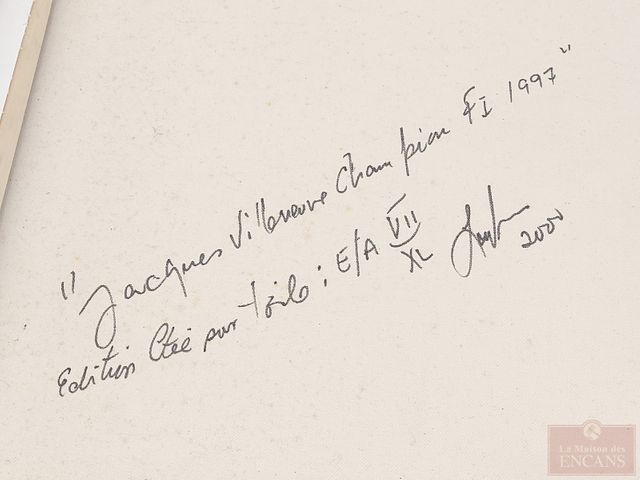 "Jacques Villeneuve Champion F1 1997"
Edition Ltée sur toile : E/A VII/XL 2000
La Maison des
ENCANS